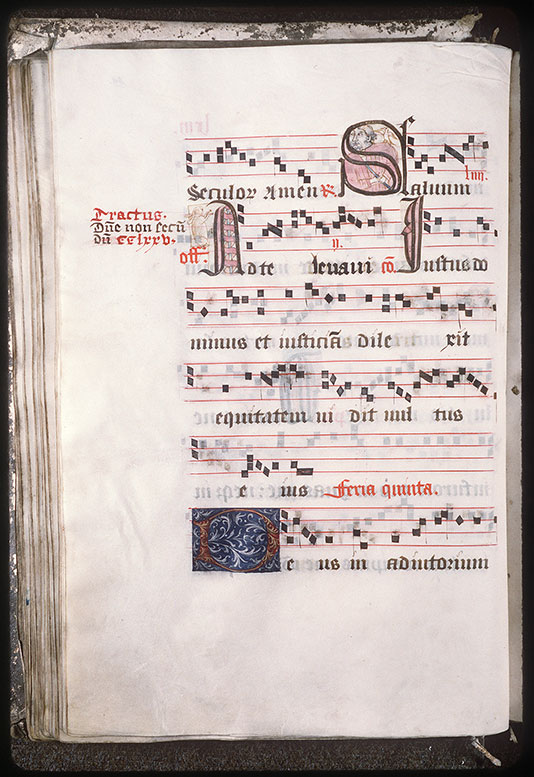 Seculor Amen R. Saluum
lnn.
Tractus.
Dñe non secũ
dũ cslxxv.
off. Ad te levavi cõ. Iustus do
ii.
minus et iusticiã s dile xit
equitatem ui dit uul tus
e ius Feria quinta.
De us in adiutorium